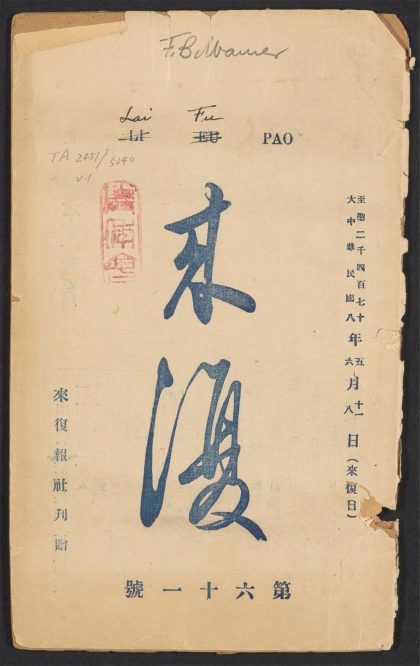 F.B. Warner
Lai Fu
PAO
TA 2451/5240
v.1
至聖二千四百七十年五月十一日
大中華民國八年六月八日(來復日)
來復
來復報社刊贈
第六十一號